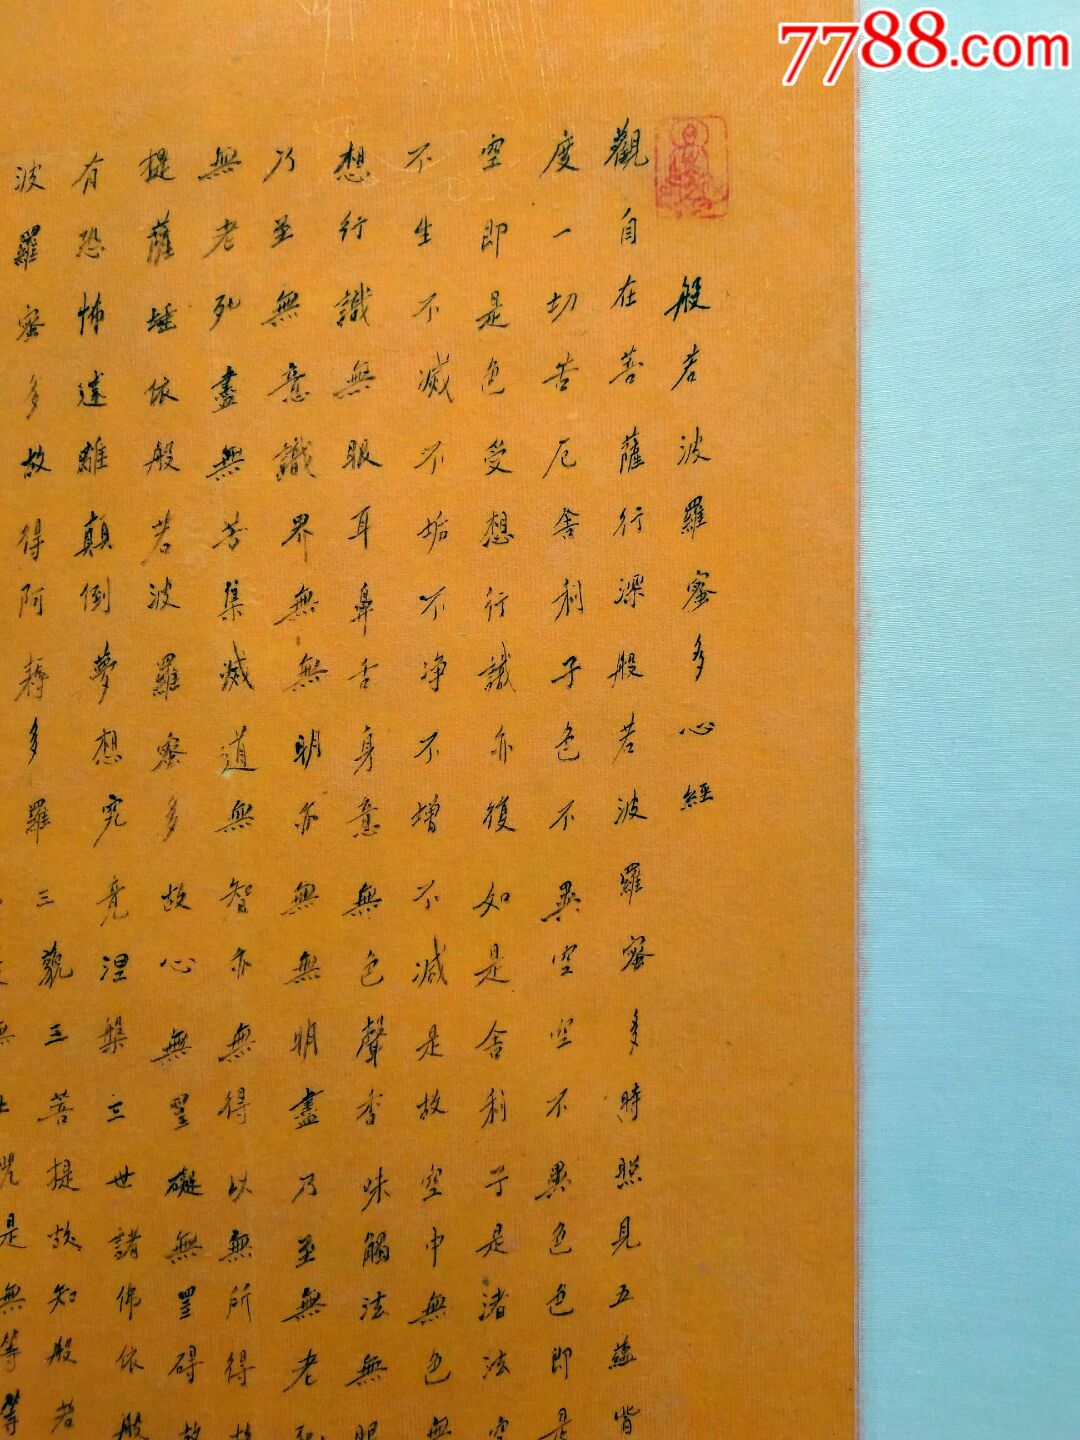 7788.com
般若波羅蜜多心經
觀自在菩薩行深般若波羅蜜多時照見五蘊皆
度一切苦厄舍利子色不異空空不異色色即是
空即是色受想行識亦復如是舍利子是諸法空
不生不滅不垢不净不增不減是故空中無色無
想行識無眼耳鼻舌身意無色聲香味觸法無眼
乃至無意識界無無明亦無無明盡乃至無老死
無老死盡無苦集滅道無智亦無得以無所得故
提薩埵依般若波羅蜜多故心無罣礙無罣碍故
有恐怖遠離顛倒夢想究竟涅槃三世諸佛依般
波羅蜜多故得阿耨多羅三藐三菩提故知般若
咒是無等等